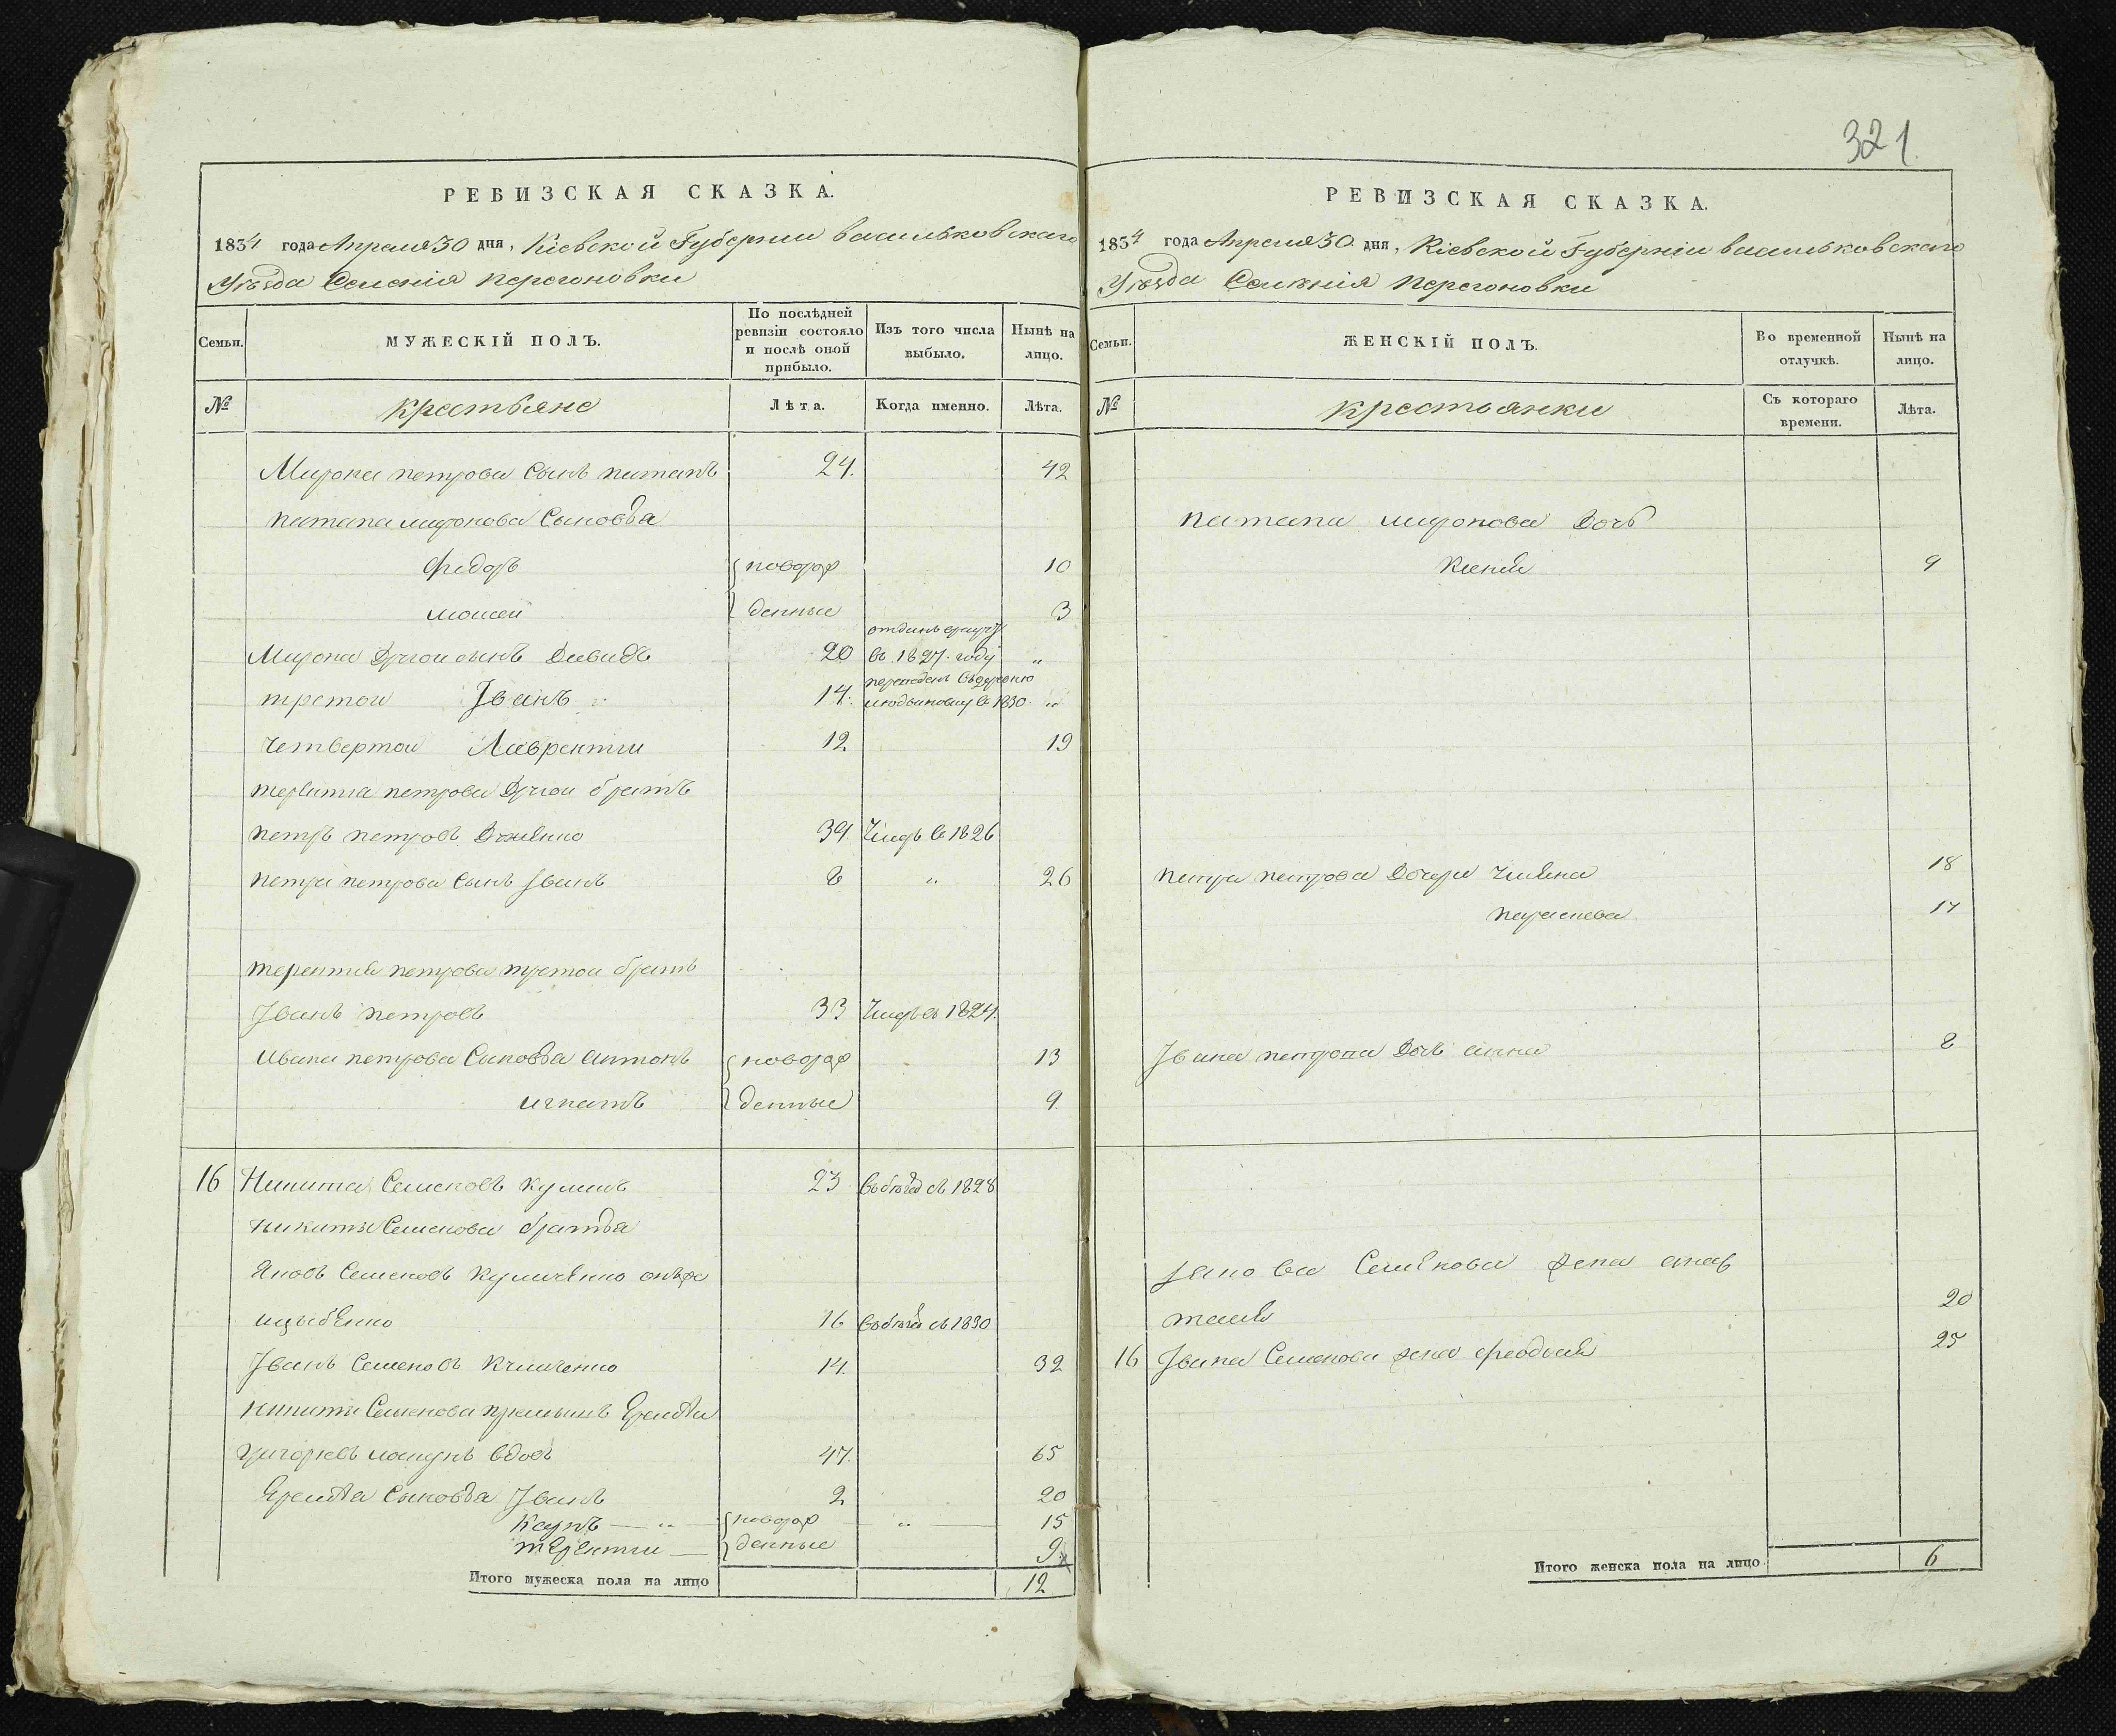 321
РЕВИЗСКАЯ СКАЗКА.
1834 года Апреля 30 дня, Кіевской Губерніи васильковского
Уѣзда Селенія перегоновки
Семьи.
МУЖЕСКІЙ ПОЛЪ.
По послѣдней ревизіи состояло и послѣ оной прибыло.
Изъ того числа выбыло.
Нынѣ на лицо.
№
крестьяне
Лѣта.
Когда именно.
Лѣта.
Мирона петрова Сынъ патапъ 24. 42
патапа миронова Сыновья
Федоръ новорож 10
моисей денные 3
отданъ
Мирона Другои сынъ Давидъ 20 въ 1827. году "
третои Іванъ 14. въ 1830 "
Четвертои Лаврентии 12 19
петрова Другои братъ
петръ петровъ 39. Умеръ въ 1826
петра петрова Сынъ Іванъ 8 " 26
терентия петрова третои братъ
Іванъ петровъ 33 Умеръ въ 1824.
Ивана петрова Сыновья антонъ новорож 13
игнатъ денные 9.
16 Никита Семеновъ 23 въ бѣгахъ съ 1828
никиты Семенова братья
Яковъ Семеновъ онъже
16 въ бѣгахъ съ 1830
Іванъ Семеновъ 14. 32
никиты Семенова Еремѣи
григорьевъ вдовъ 47. 65
Еремѣя Сыновья Іванъ 2 20
новорож " 15
терентии денные 9
Итого мужеска пола на лицо 12
РЕВИЗСКАЯ СКАЗКА.
1834 года Апреля 30 дня, Кіевской Губерніи васильковского
Уѣзда Селенія перегоновки
Семьи.
ЖЕНСКІЙ ПОЛЪ.
Во временной отлучкѣ.
Нынѣ на лицо.
№
крестьянки
Съ котораго времени.
Лѣта.
патапа миронова Дочь
Ксения 9
петра петрова Дочери 18
параскева 17
Івана петрова Дочь анна 8
Якова Семенова жена анас
тасия 20
16 Івана Семенова жена феодосия 25
Итого женска пола на лицо 6